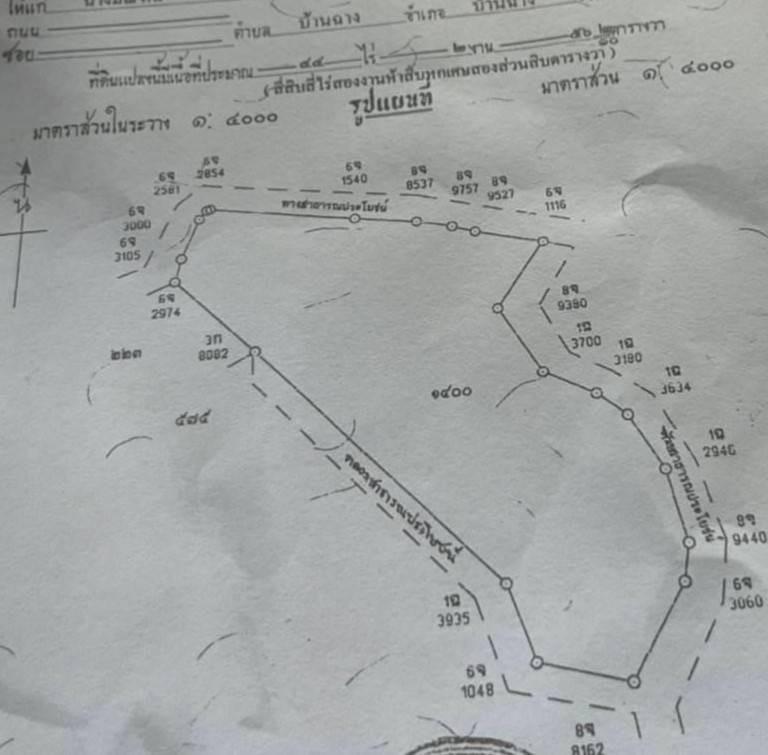 ให้แก่
ถนน ตำบล บ้านฉาง อำเภอ บ้านฉาง
ซอย
ที่ดินแปลงนี้มีเนื้อที่ประมาณ ๔๔ ไร่ ๒ งาน ๕๖ ๒/๑๐ ตารางวา
(สี่สิบสี่ไร่สองงานห้าสิบหกเศษสองส่วนสิบตารางวา)
มาตราส่วนในระวาง ๑: ๔๐๐๐ รูปแผนที่ มาตราส่วน ๑: ๔๐๐๐
น
6จ 2581
6จ 2854
6จ 1540
8จ 8537
8จ 9757
8จ 9527
6จ 1116
6จ 3000
6จ 3105
ทางสาธารณประโยชน์
6จ 2974
8จ 9380
1ฉ 3700
1ฉ 3180
3ก 8082
๒๒๓
๑๔๐๐
1ฉ 3634
๕๗๕
1ฉ 2946
คลองสาธารณประโยชน์
สาธารณประโยชน์
8จ 9440
6จ 3060
1ฉ 3935
6จ 1048
8จ 8162